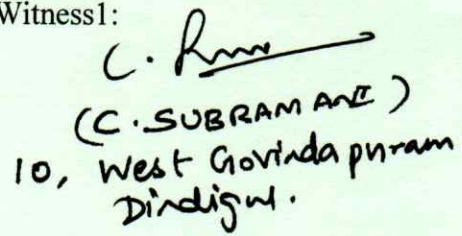 Witness1:
C.
(C. SUBRAMANI)
10, West Govindapuram
Dindigul.